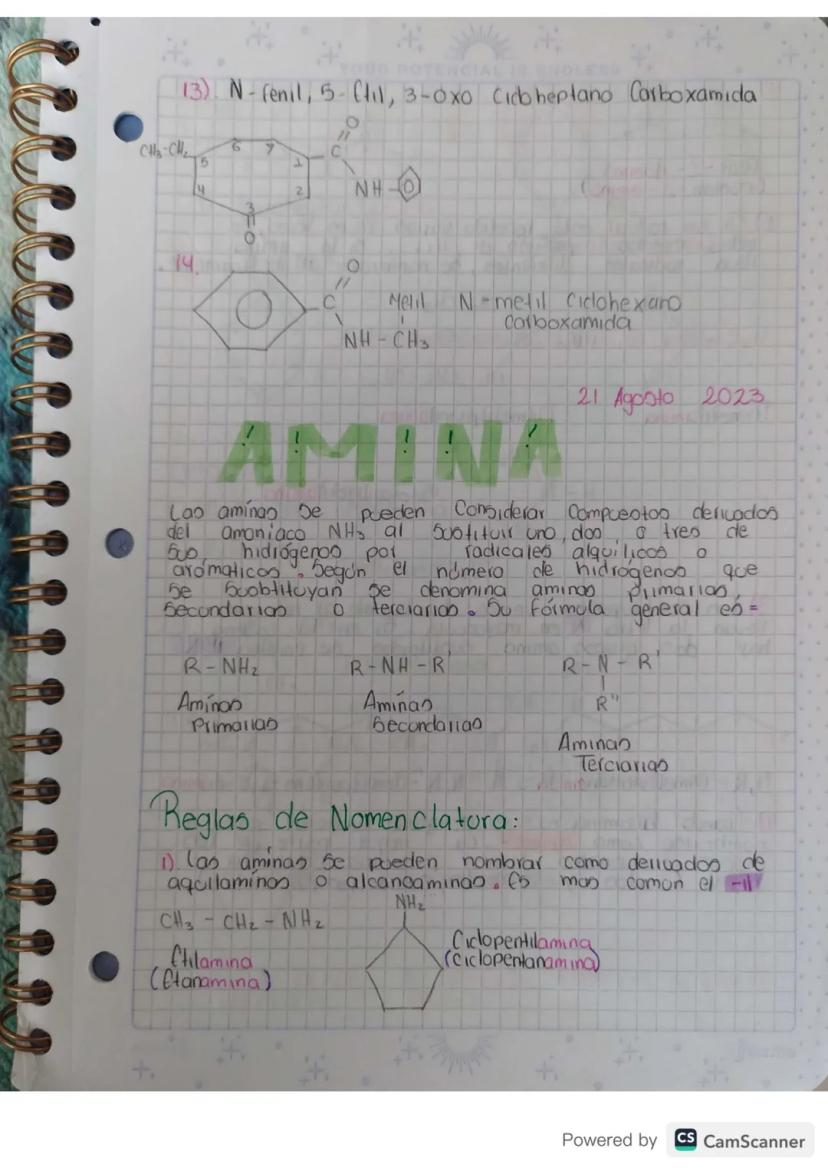 YOUR POTENCIAL IS ENDLESS
13) N-fenil, 5-Etil, 3-oxo Cicloheptano Carboxamida
O
CH3-CH2
6 7
C
5
1
4
2
NH
3
O
14.
O
C Metil N-metil Ciclohexano
Carboxamida
NH - CH3
21 Agosto 2023
AMINA
Las aminas se pueden Considerar Compuestos derivados
del amoniaco NH3 al sustituir uno, dos o tres de
sus hidrógenos por radicales alquílicos o
aromaticos. Según el número de hidrógenos que
se substituyan se denomina aminas primarias,
secundarias o terciarias. Su fórmula general es=
R-NH2 R-NH-R' R-N-R'
R"
Aminas Aminas
Primarias Secundarias
Aminas
Terciarias
Reglas de Nomenclatura:
1) Las aminas se pueden nombrar como derivados de
aquilaminos o alcanoaminas. Es mas comun el -il
NH2
CH3 - CH2 - NH2
Etilamina Ciclopentilamina
(Etanamina) (Ciclopentanamina)
Powered by CS CamScanner